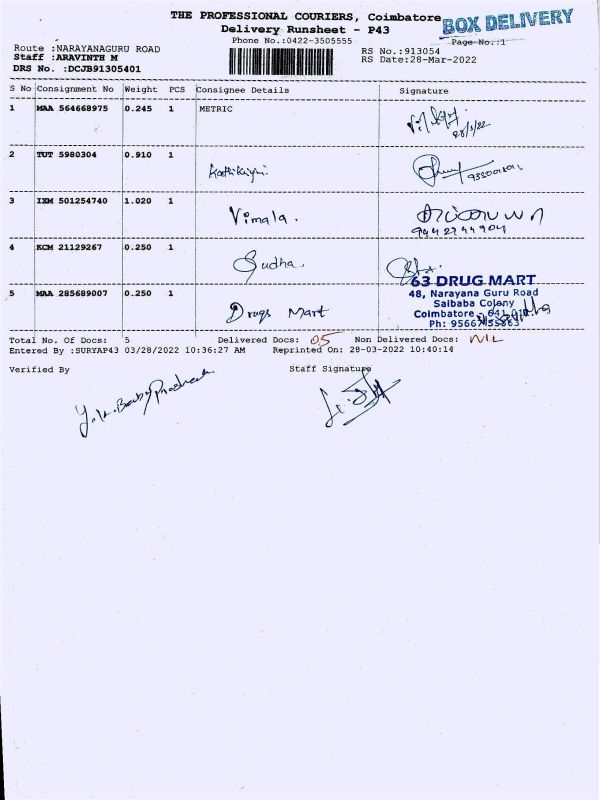 THE PROFESSIONAL COURIERS, Coimbatore
BOX DELIVERY
Delivery Runsheet - P43
Phone No.:0422-3505555
Page No.:1
Route :NARAYANAGURU ROAD
Staff :ARAVINTH M
DRS No. :DCJB91305401
RS No.:913054
RS Date:28-Mar-2022
S No Consignment No Weight PCS Consignee Details Signature
1 MAA 564668975 0.245 1 METRIC
28/3/22
2 TUT 5980304 0.910 1
3 IXM 501254740 1.020 1 Vimala.
9442744904
4 KCM 21129267 0.250 1 Sudha.
63 DRUG MART
48, Narayana Guru Road
Saibaba Colony
5 MAA 285689007 0.250 1 Drugs Mart
Coimbatore - 641 011
Ph: 95667 55863
Total No. Of Docs: 5 Delivered Docs: 05 Non Delivered Docs: NIL
Entered By :SURYAP43 03/28/2022 10:36:27 AM Reprinted On: 28-03-2022 10:40:14
Verified By Staff Signature